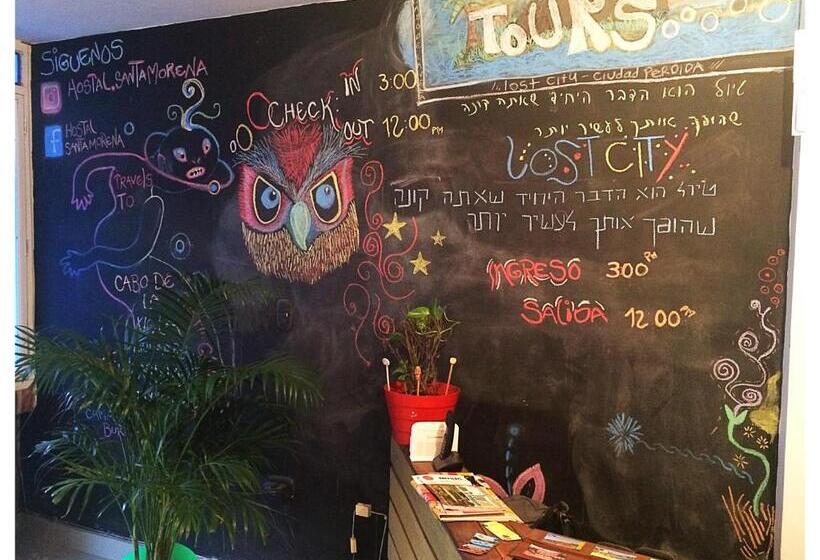 SIGUENOS
HOSTAL.SANTAMORENA
f HOSTAL
SANTAMORENA
TRAVELS
TO
CABO DE
LA
CHECK: IN 3:00
OUT 12:00 PM
TOURS
LOST CITY - CIUDAD PERDIDA
טיול הוא הדבר היחיד שאתה קונה
שהופך אותך לעשיר יותר
LOST CITY
טיול הוא הדבר היחיד שאתה קונה
שהופך אותך לעשיר יותר
INGRESO 300 PM
SALIDA 12 00 PM